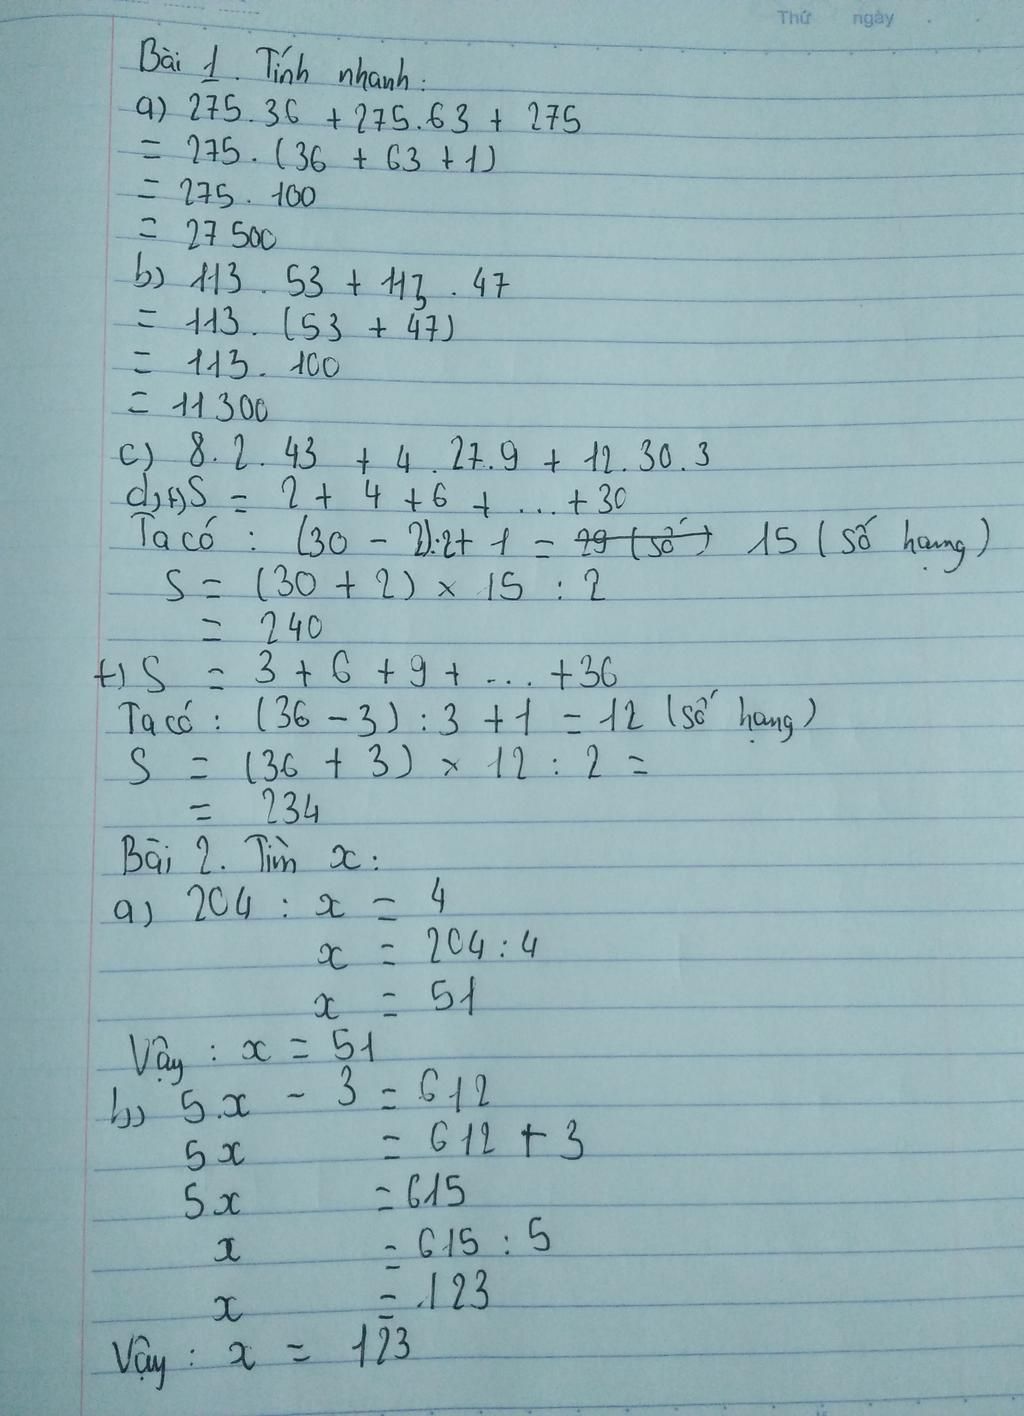 Thứ ngày
Bài 1. Tính nhanh:
a) 275.36 + 275.63 + 275
= 275.(36 + 63 + 1)
= 275. 100
= 27 500
b) 113. 53 + 113 . 47
= 113. (53 + 47)
= 113. 100
= 11 300
c) 8. 2. 43 + 4. 27.9 + 12. 30. 3
d) +) S = 2 + 4 + 6 + ... + 30
Ta có : (30 - 2):2+ 1 = 29 (số) 15 (số hạng)
S = (30 + 2) × 15 : 2
= 240
+) S = 3 + 6 + 9 + ... + 36
Ta có : (36 - 3) : 3 + 1 = 12 (số hạng)
S = (36 + 3) × 12 : 2 =
= 234
Bài 2. Tìm x:
a) 204 : x = 4
x = 204 : 4
x = 51
Vậy : x = 51
b) 5.x - 3 = 612
5x = 612 + 3
5x = 615
x = 615 : 5
x = 123
Vậy : x = 123